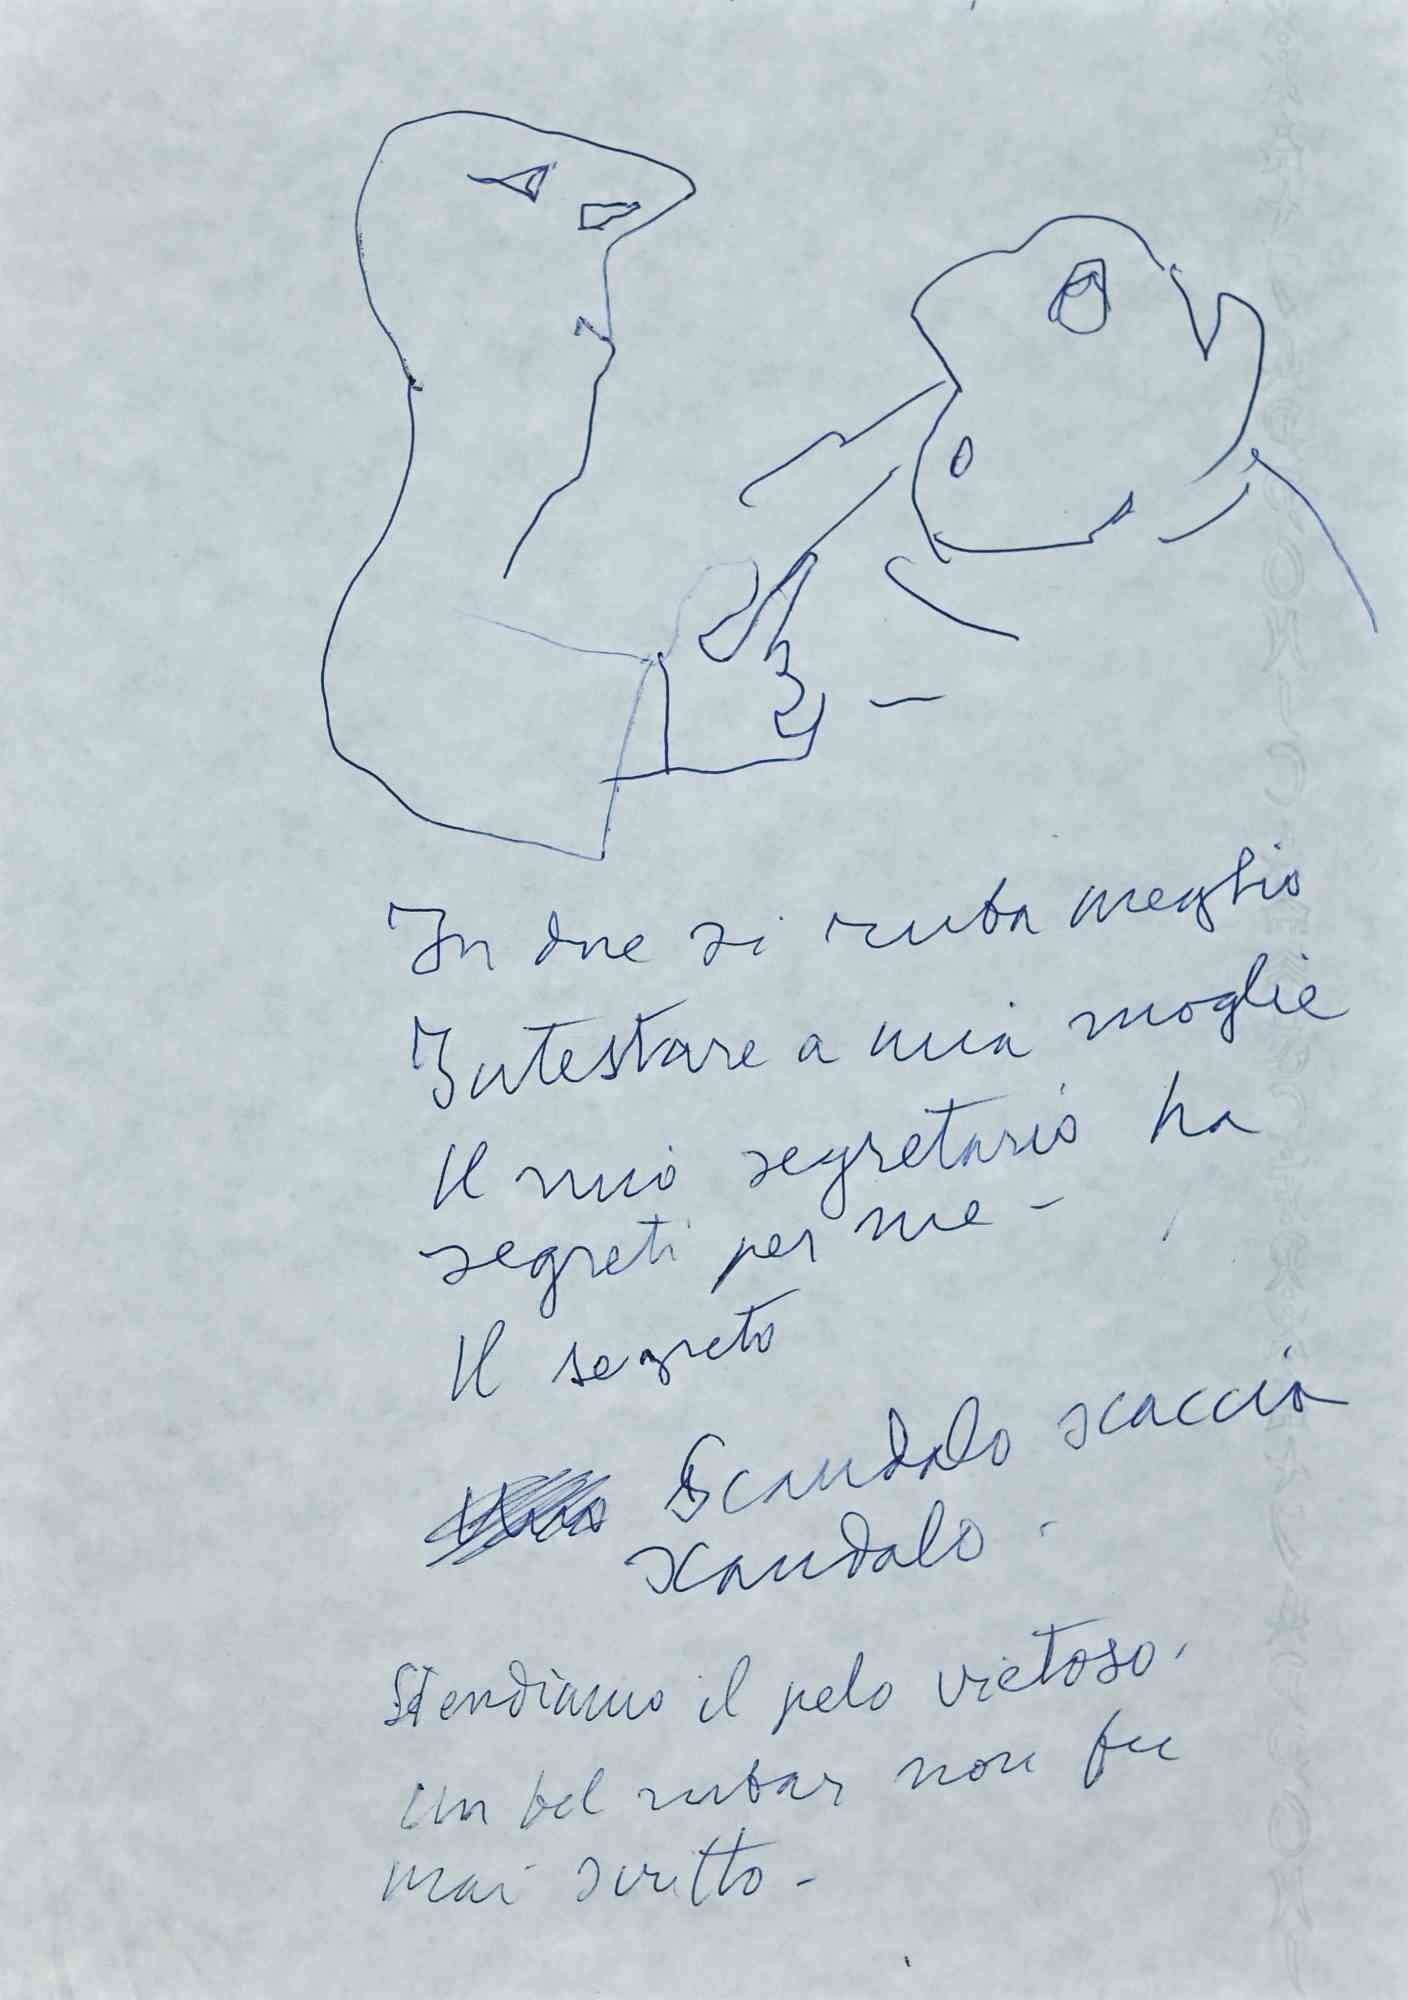 In due si ruba meglio
Intestare a mia moglie
Il mio segretario ha
segreti per me -
Il segreto
Scandalo scaccia
scandalo .
Stendiamo il pelo vietoso.
un bel rubar non fu
mai scritto -